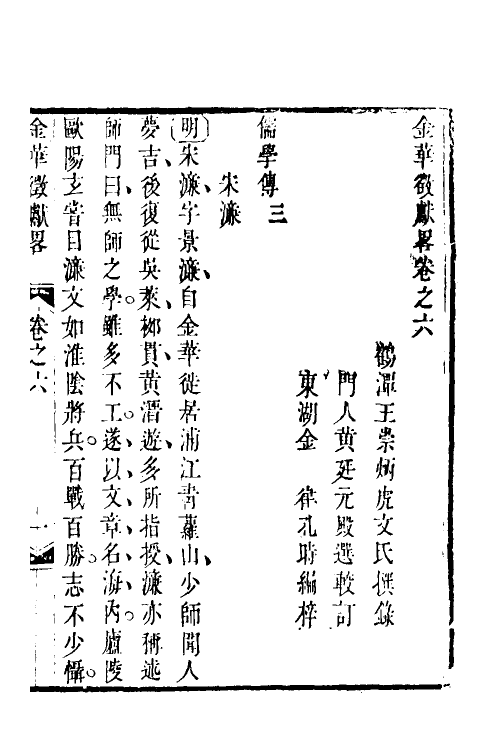 金華徵獻畧卷之六
鶴潭王崇炳虎文氏撰錄
門人黃廷元殿選較訂
東湖金　律孔時編梓
儒學傳三
宋濂
明宋濂字景濂自金華徙居浦江靑蘿山少師聞人
夢吉後復從吳萊柳貫黃溍遊多所指授濂亦稱述
師門曰無師之學雖多不工遂以文章名海內廬陵
歐陽玄嘗目濂文如淮陰將兵百戰百勝志不少懾
金華徵獻畧　卷之六　一